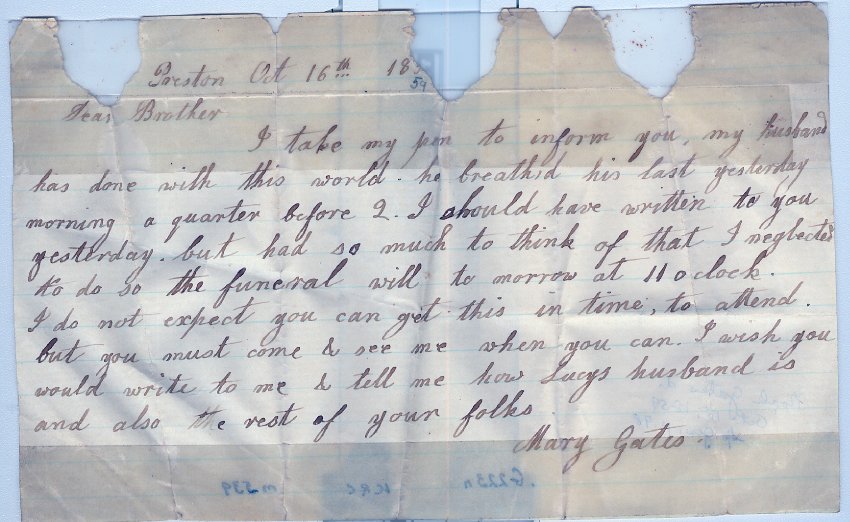 Preston Oct 16th 18
59
Dear Brother
I take my pen to inform you, my husband
has done with this world. he breathed his last yesterday
morning a quarter before 2. I should have written to you
yesterday. but had so much to think of that I neglected
to do so the funeral will to morrow at 11 o clock.
I do not expect you can get this in time, to attend.
but you must come & see me when you can. I wish you
would write to me & tell me how Lucys husband is
and also the rest of your folks
Mary Gates